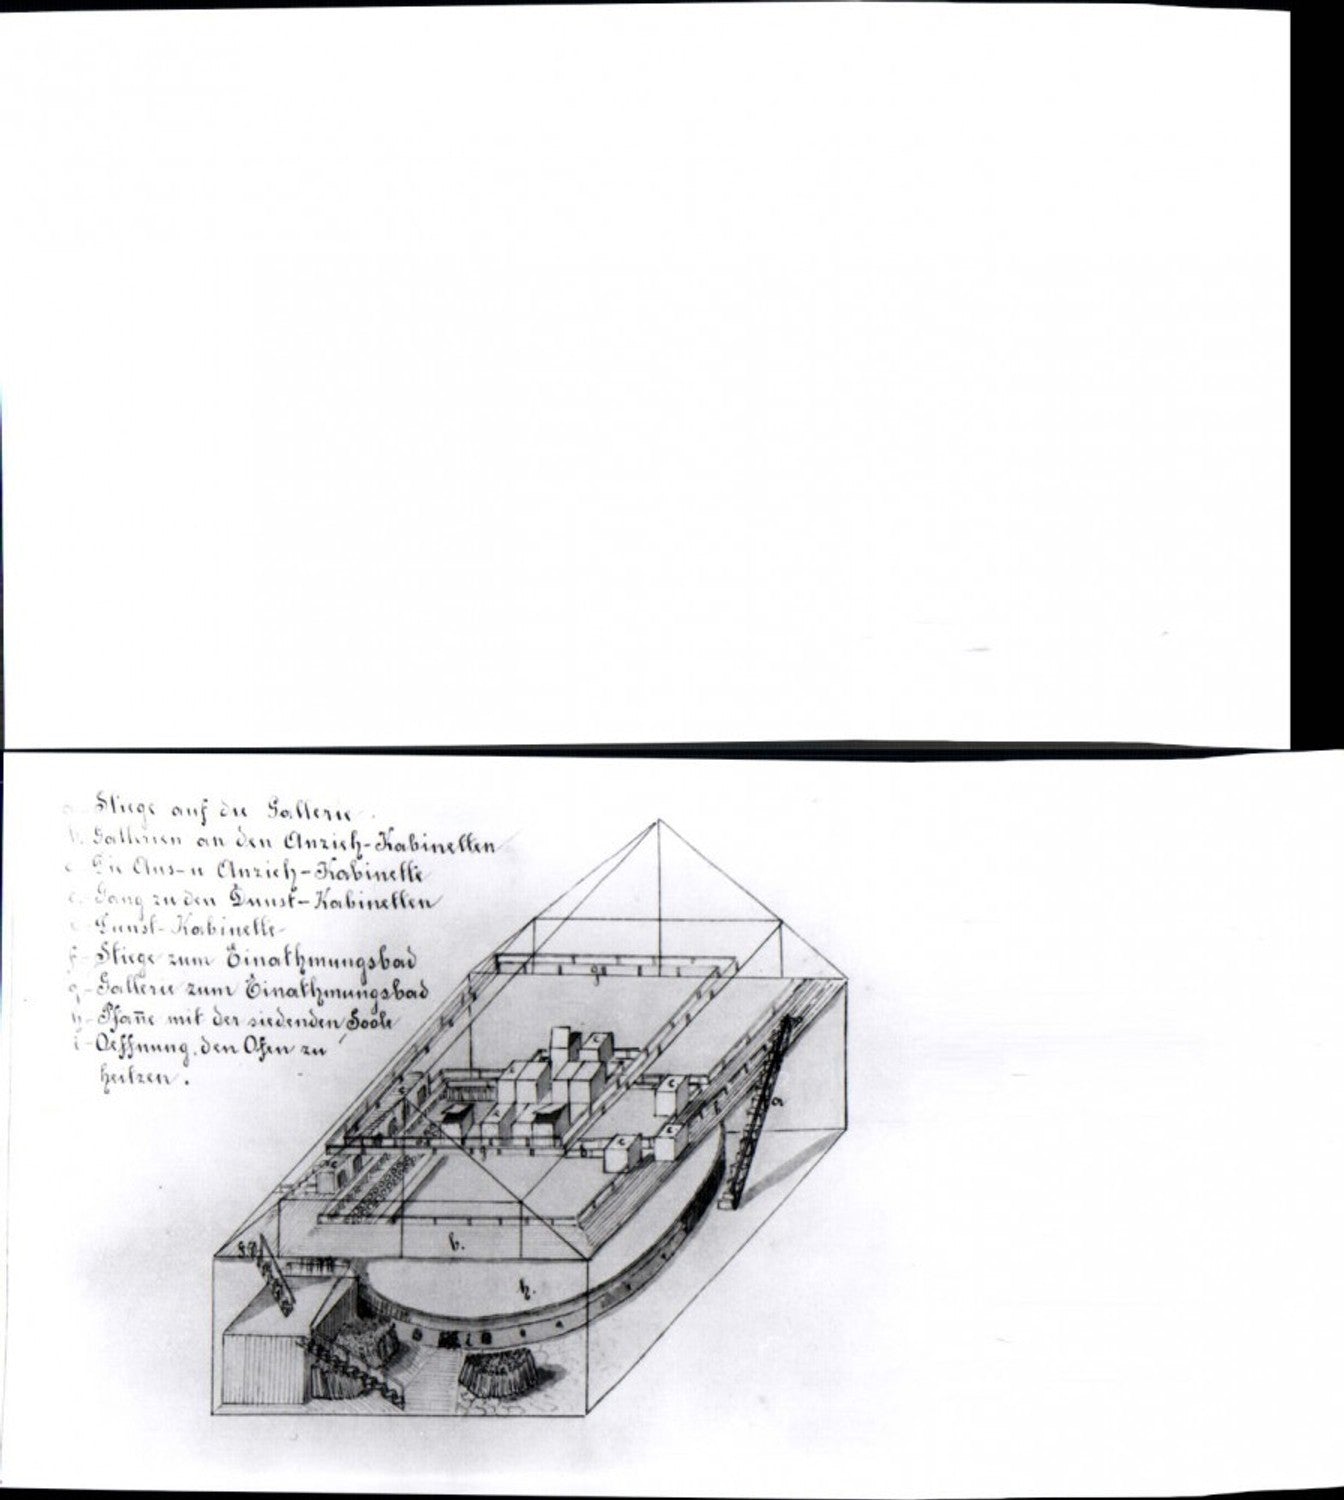 a- Stiege auf die Gallerie.
b. Gallerien an den Anzieh-Kabinetten
c- Die Aus- u Anzieh-Kabinette
Gang zu den Dunst-Kabinetten
Dunst-Kabinette
f- Stiege zum Einathmungsbad
g- Gallerie zum Einathmungsbad
h- Pfan̄e mit der siedenden Soole
i- Oeffnung, den Ofen zu
heitzen.
g
c
c
c
c
a
b.
h.
i